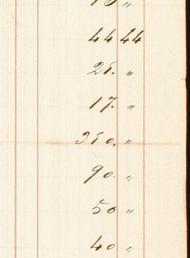 10 "
44 44
25. "
17. "
350. "
90. "
50 "
40 "